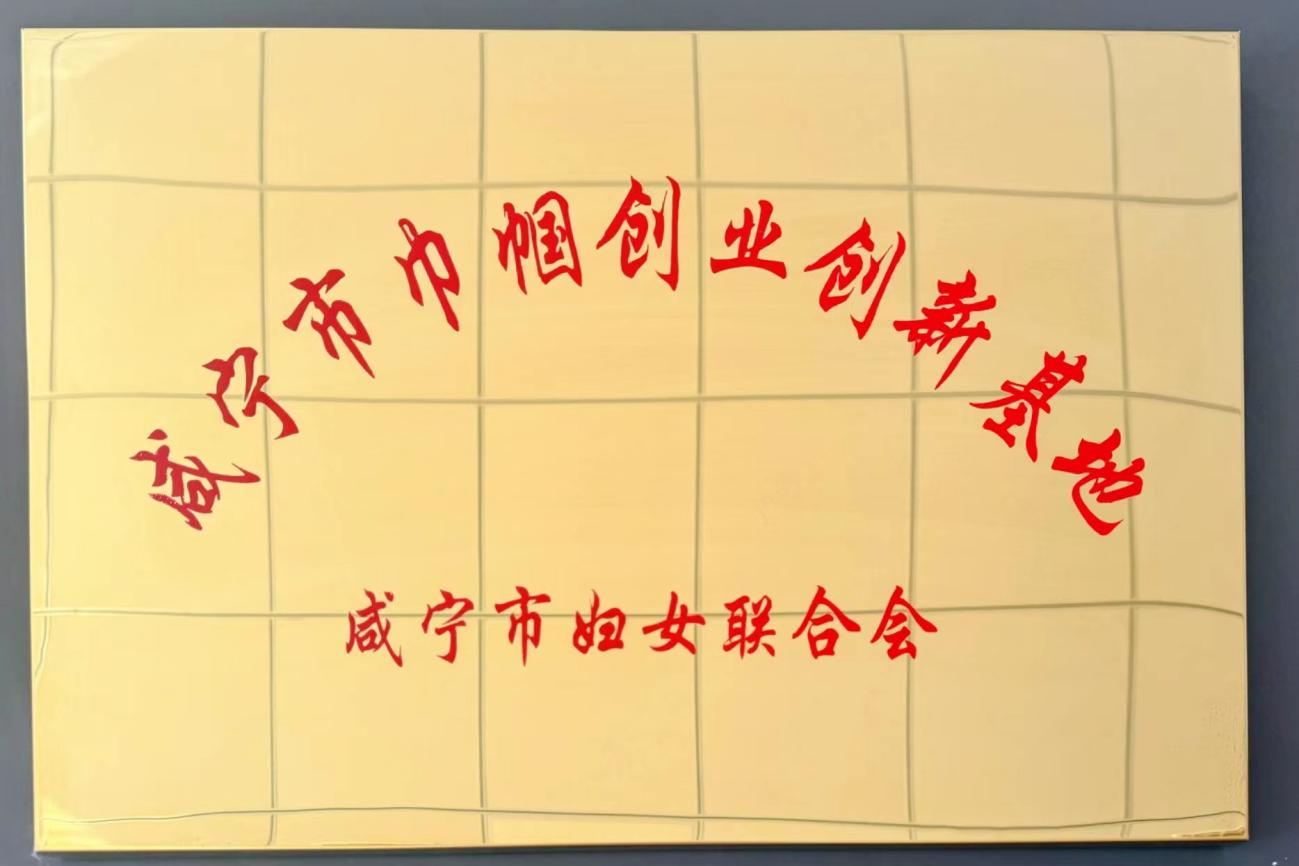 咸宁市巾帼创业创新基地
咸宁市妇女联合会